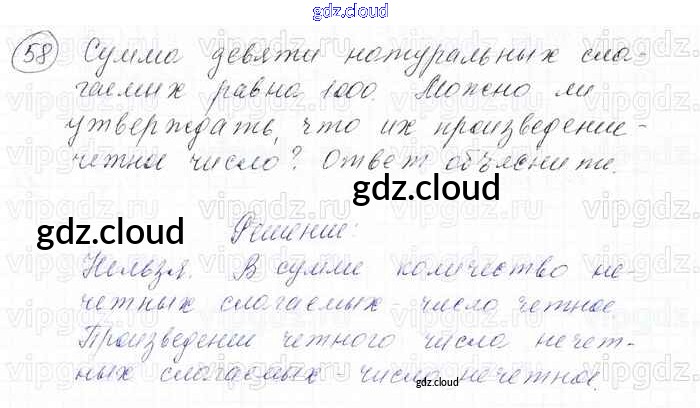 gdz.cloud
58 Сумма девяти натуральных сла-
гаемых равна 1000. Можно ли
утверждать, что их произведение -
четное число? Ответ объясните.
gdz.cloud
gdz.cloud
Решение:
Нельзя. В сумме количество не-
четных слагаемых - число четное
Произведении четного числа нечет-
ных слагаемых - число нечетное.
gdz.cloud